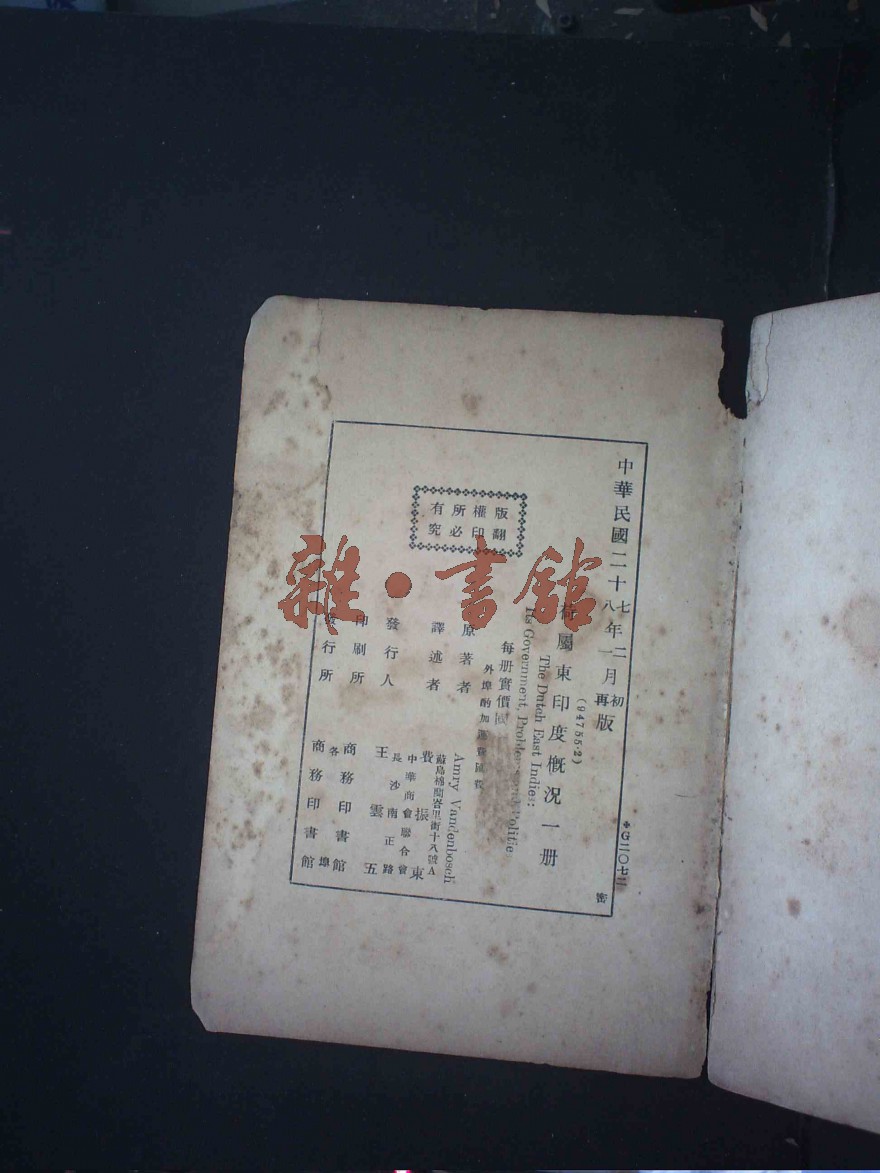 中華民國二十七年二月初版
八年一月再版
✠G二〇七二
密
荷屬東印度概況一册
(94755·2)
The Dutch East Indies:
Its Government, Problems and Politics
每册實價國
外埠酌加運費匯費
原著者 Amry Vandenbosch
譯述者 費振東
蘇島棉蘭峇里街十八號A
中華商會聯合會
發行人 王雲五
長沙南正路
印刷所 商務印書館
發行所 商務印書館
各埠
版權所有
翻印必究
雜·書館